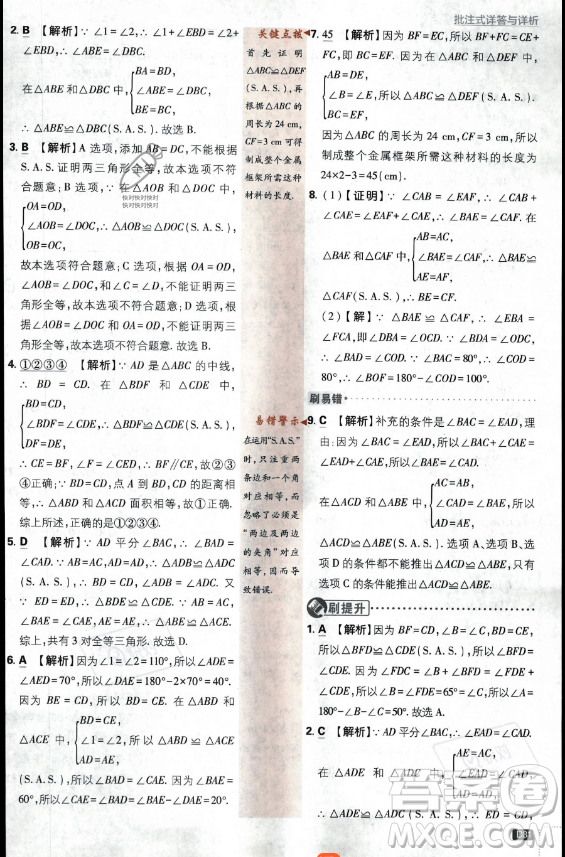 批注式详答与详析
2. B 【解析】∵ ∠1=∠2, ∴ ∠1+∠EBD=∠2+
∠EBD, ∴ ∠ABE=∠DBC.
在△ABE 和△DBC 中,
BA=BD,
∠ABE=∠DBC,
BE=BC,
∴ △ABE≌△DBC(S.A.S.). 故选 B.
3. B 【解析】A 选项, 添加 AB=DC, 不能根据
S.A.S. 证明两三角形全等, 故本选项不符
合题意; B 选项, 在△AOB 和△DOC 中,
OA=OD,
∠AOB=∠DOC, ∴ △AOB≌△DOC(S.A.S.),
OB=OC,
故本选项符合题意; C 选项, 根据 OA=OD,
∠AOB=∠DOC 和∠A=∠D, 不能证明两三
角形全等, 故本选项不符合题意; D 选项, 根据
OA=OD, ∠AOB=∠DOC, 不能证明两三角形
全等, 故本选项不符合题意. 故选 B.
4. ①②③④ 【解析】∵ AD 是△ABC 的中线,
∴ BD = CD. 在 △BDF 和 △CDE 中,
BD=CD,
∠BDF=∠CDE, ∴ △BDF≌△CDE(S.A.S.),
DF=DE,
∴ CE=BF, ∠F=∠CED, ∴ BF∥CE, 故①③
④正确. ∵ BD=CD, 点 A 到 BD, CD 的距离
相等, ∴ △ABD 和△ACD 面积相等, 故②正确.
综上所述, 正确的是①②③④.
5. D 【解析】∵ AD 平分∠BAC, ∴ ∠BAD=
∠CAD. ∵ AB=AC, AD=AD, ∴ △ABD≌
△ACD(S.A.S.), ∴ BD=CD, ∠B=∠C.
又∵ BE=CF, ∴ △BDE≌△CDF. ∵ AB=AC,
BE=CF, ∴ AE=AF, ∴ △AED≌△AFD.
综上, 共有 3 对全等三角形. 故选 D.
6. A 【解析】因为∠1=∠2=110°, 所以∠ADE=
∠AED=70°, 所以∠DAE=180°-2×70°=40°.
因为 BE=CD, 所以 BD=CE. 在△ABD 和
△ACE 中,
BD=CE,
∠1=∠2, 所以△ABD≌△ACE
AD=AE,
(S.A.S.), 所以∠BAD=∠CAE. 因为∠BAE=
60°, 所以∠CAE=∠BAD=∠BAE-∠DAE=20°.
关键点拨
首先证明
△ABC≌△DEF
(S.A.S.), 再
根据△ABC 的
周长为 24 cm,
CF=3 cm 可得
制成整个金属
框架所需这种
材料的长度.
易错警示
在运用“S.A.S.”
时, 只注重两
条边和一个角
对应相等, 而
忽略了必须为
“两边及两边
的夹角”对应
相等, 因而导
致错误.
7. 45 【解析】因为 BF=EC, 所以 BF+FC=CE+
FC, 即 BC=EF. 因为在△ABC 和△DEF 中,
AB=DE,
∠B=∠E, 所以△ABC≌△DEF(S.A.S.).
BC=EF,
因为△ABC 的周长为 24 cm, CF=3 cm, 所以
制成整个金属框架所需这种材料的长度为
24×2-3=45(cm).
8. (1)【证明】∵ ∠CAB = ∠EAF, ∴ ∠CAB +
∠CAE=∠EAF+∠CAE, ∴ ∠BAE=∠CAF. 在
△BAE 和△CAF 中,
AB=AC,
∠BAE=∠CAF, ∴ △BAE≌
AE=AF,
△CAF(S.A.S.), ∴ BE=CF.
(2)【解】∵ △BAE ≌ △CAF, ∴ ∠EBA =
∠FCA, 即∠DBA=∠OCD. ∵ ∠BDA=∠ODC,
∴ ∠BAC=∠COD. ∵ ∠BAC=80°, ∴ ∠COD=
80°, ∴ ∠BOF=180°-∠COD=100°.
刷易错
9. C 【解析】补充的条件是∠BAC=∠EAD, 理
由: 因为∠BAC=∠EAD, 所以∠BAC+∠CAE=
∠EAD+∠CAE, 所以∠BAE=∠CAD.
在△ACD 和△ABE 中,
AC=AB,
∠CAD=∠BAE, 所以
AD=AE,
△ACD≌△ABE(S.A.S.). 选项 A、选项 B、选
项 D 的条件都不能推出△ACD≌△ABE, 只有
选项 C 的条件能推出△ACD≌△ABE.
刷提升
1. A 【解析】因为 BF=CD, ∠B=∠C, BD=CE,
所以△BDF≌△CED(S.A.S.), 所以∠BFD=
∠CDE. 因为∠FDC=∠B+∠BFD=∠FDE+
∠CDE, 所以∠B=∠FDE=65°=∠C, 所以∠A=
180°-∠B-∠C=50°. 故选 A.
2. C 【解析】∵ AD 平分∠BAC, ∴ ∠EAD=∠CAD.
在 △ADE 和 △ADC 中,
AE=AC,
∠EAD=∠CAD,
AD=AD,
∴ △ADE ≌ △ADC(S.A.S.), ∴ ED = CD,
快对快对快对
快对快对
MXQE.COM